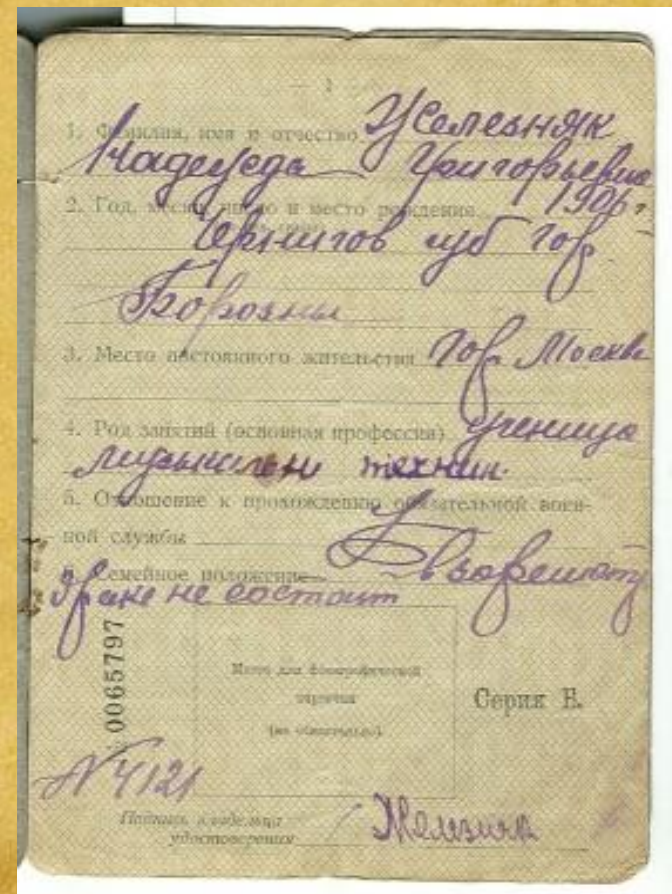 — 1 —
1. Фамилия, имя и отчество Железняк
Надежда Григорьевна
2. Год, месяц, число и место рождения 1906 г
Чернигов губ гор
Борозны
3. Место постоянного жительства гор Москва
4. Род занятий (основная профессия) ученица
музыкальн технки.
5. Отношение к прохождению обязательной воен-
ной службы
6. Семейное положение В
браке не состоит
0065797
Место для фотографической
карточки
(не обязательно)
Серия Е.
N 4121
Подпись владельца
удостоверения Железняк